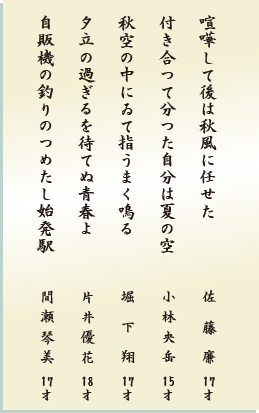 喧嘩して後は秋風に任せた　佐藤廉　17才
付き合つて分つた自分は夏の空　小林央岳　15才
秋空の中にゐて指うまく鳴る　堀下翔　17才
夕立の過ぎるを待てぬ青春よ　片井優花　18才
自販機の釣りのつめたし始発駅　間瀬琴美　17才